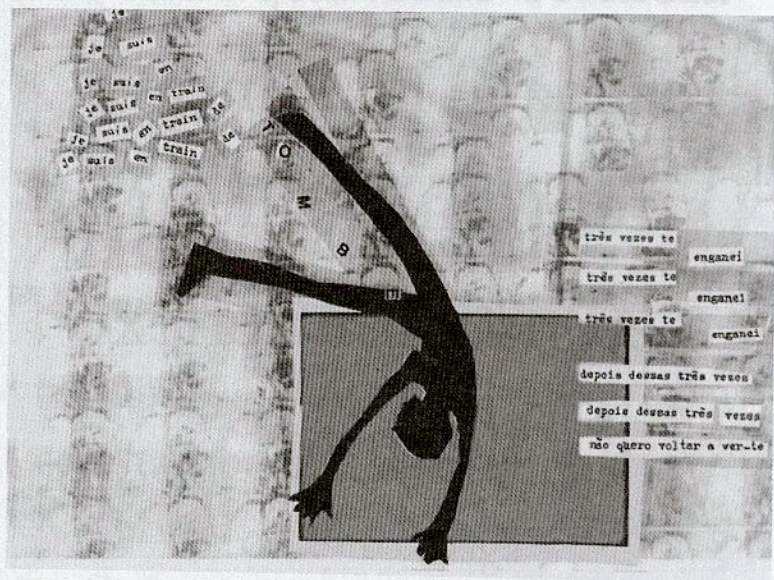 je
je suis
je suis en
je suis en train
je suis en train de
je suis en train de
T
O
M
B
E
três vezes te
enganei
três vezes te
enganei
três vezes te
enganei
depois dessas três vezes
depois dessas três vezes
não quero voltar a ver-te